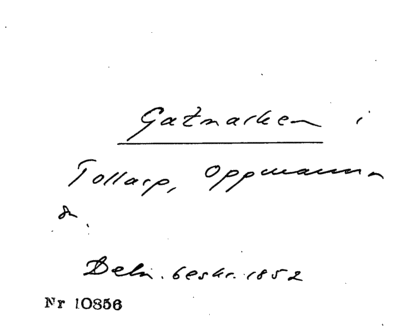 Gatmarken i
Tollarp, Oppmanna
sn.
Deln. beskr. 1852
Nr 10856